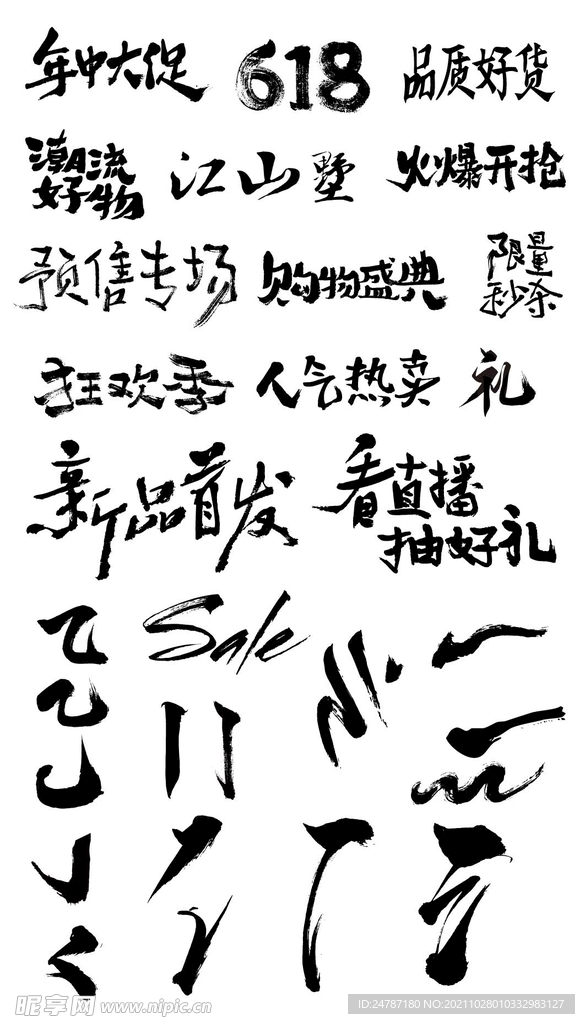 年中大促 618 品质好货
潮流好物 江山墅 火爆开抢
预售专场 购物盛典 限量秒杀
狂欢季 人气热卖 礼
新品首发 看直播
抽好礼
Sale
昵享网 www.nipic.cn
ID:24787180 NO:20211028010332983127